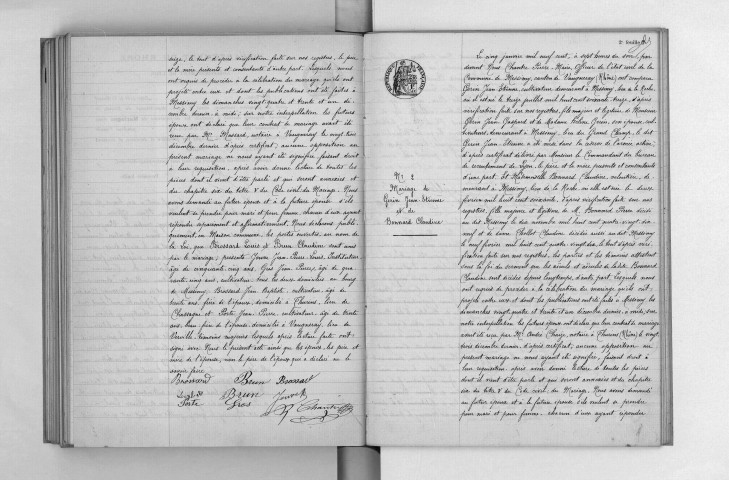 seize, le tout d'après vérification faite sur nos registres, le père
et la mère présents et consentants d'autre part. Lesquels nous
ont requis de procéder à la célébration du mariage qu'ils ont
projeté entre eux et dont les publications ont été faites à
Messimy les dimanches vingt quatre et trente et un dé-
cembre dernier, à midi; sur notre interpellation les futurs
époux ont déclaré que leur contrat de mariage avait été
reçu par Me notaire à Vaugneray le vingt trois
décembre dernier d'après certificat; aucune opposition au
présent mariage ne nous ayant été signifiée, faisant droit
à leur réquisition, après avoir donné lecture de toutes les
pièces dont il vient d'être parlé et qui seront annexées et
du chapitre six du titre V du Code civil du Mariage. Nous
avons demandé au futur époux et à la future épouse s'ils
veulent se prendre pour mari et pour femme, chacun d'eux ayant
répondu séparément et affirmativement. Nous déclarons publi-
quement, en Maison commune, les portes ouvertes, au nom de
la loi, que Brossard Louis et Brun Claudine sont unis
par le mariage; présents Jean Pierre Louis, Instituteur
âgé de cinquante cinq ans, Gros Jean Pierre, âgé de qua-
rante cinq ans, cultivateur, tous les deux domiciliés au bourg
de Messimy, Brossard Jean Baptiste, cultivateur, âgé de
trente ans, frère de l'époux, domicilié à Thurins, lieu de
et Porte Jean Pierre, cultivateur, âgé de trente
ans, beau frère de l'épouse, domicilié à Vaugneray, lieu de
témoins majeurs lesquels après lecture faite ont
signé avec Nous le présent acte ainsi que les époux, les père et
mère de l'épouse, non le père de l'époux qui a déclaré ne le
savoir faire.
Brossard Brun Brossard
Brun
Porte Gros
2e feuillet
Le cinq janvier mil neuf cent, à sept heures du soir, par
devant Nous Chantre Pierre, Maire, officier de l'état civil de la
Commune de Messimy, canton de Vaugneray (Rhône) ont comparu
Gérin Jean Etienne, cultivateur, demeurant à Messimy, lieu de la Roche,
où il est né le treize juillet mil huit cent soixante treize, d'après
vérification faite sur nos registres, fils majeur et légitime de Monsieur
Gérin Jean Gaspard et de Madame Gérin, son épouse, cul-
tivateurs, demeurant à Messimy, lieu du Grand Champ, le dit
Gérin Jean Etienne
d'après certificat délivré par Monsieur le Commandant du bureau
de recrutement de Lyon, le père et la mère présents et consentants
d'une part. Et Mademoiselle Bonnard Claudine, de-
meurant à Messimy, lieu de la Roche où elle est née le douze
février mil huit cent soixante d'après vérification faite sur nos
registres, fille majeure et légitime de M. Bonnard Pierre décédé
au dit Messimy le dix novembre mil huit cent quatre vingt dix
neuf et de dame Claudine décédée aussi au dit Messimy
le neuf février mil huit cent quatre vingt six, le tout d'après véri-
fication faite sur nos registres, les parties et les témoins attestant
sous la foi du serment que les aïeuls et aïeules de la dite Bonnard
Claudine sont décédés depuis longtemps, d'autre part. Lesquels nous
ont requis de procéder à la célébration du mariage qu'ils ont
projeté entre eux et dont les publications ont été faites à Messimy, les
dimanches vingt quatre et trente et un décembre dernier, à midi; sur
notre interpellation les futurs époux ont déclaré que leur contrat de mariage
avait été reçu par Me notaire à Thurins (Rhône) le vingt
trois décembre dernier, d'après certificat; aucune opposition au
présent mariage ne nous ayant été signifiée, faisant droit à
leur réquisition, après avoir donné lecture de toutes les pièces
dont il vient d'être parlé et qui seront annexées et du chapitre
six du titre V du Code civil du Mariage. Nous avons demandé
au futur époux et à la future épouse s'ils veulent se prendre
pour mari et pour femme, chacun d'eux ayant répondu
No 2
Mariage de
Gérin Jean Etienne
et de
Bonnard Claudine